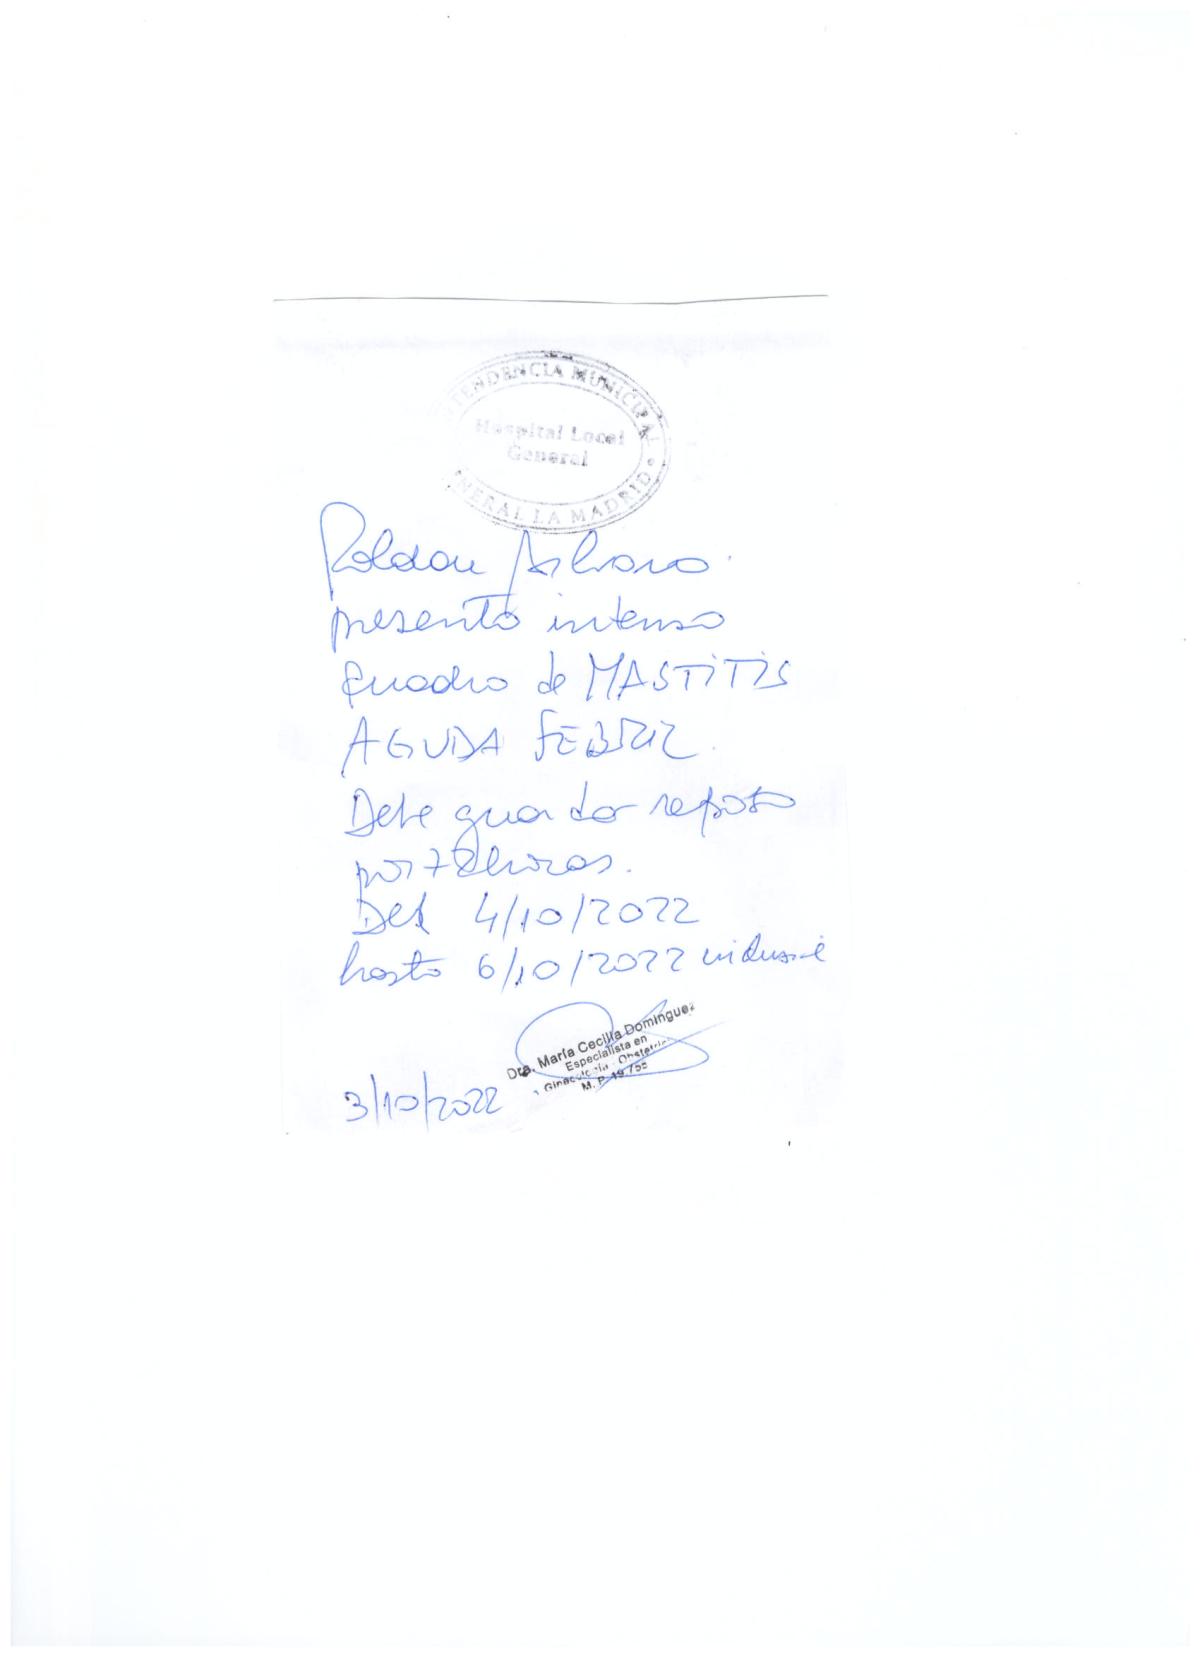 INTENDENCIA MUNICIPAL
Hospital Local
General
NERAL LA MADRID
Roldan
presentó intenso
cuadro de MASTITIS
AGUDA FEBRIL.
Debe guardar reposo
por 72 horas.
Del 4/10/2022
hasta 6/10/2022 inclusive
Dra. María Cecilia Dominguez
Especialista en
Ginecología Obstetricia
M. P.
3/10/2022